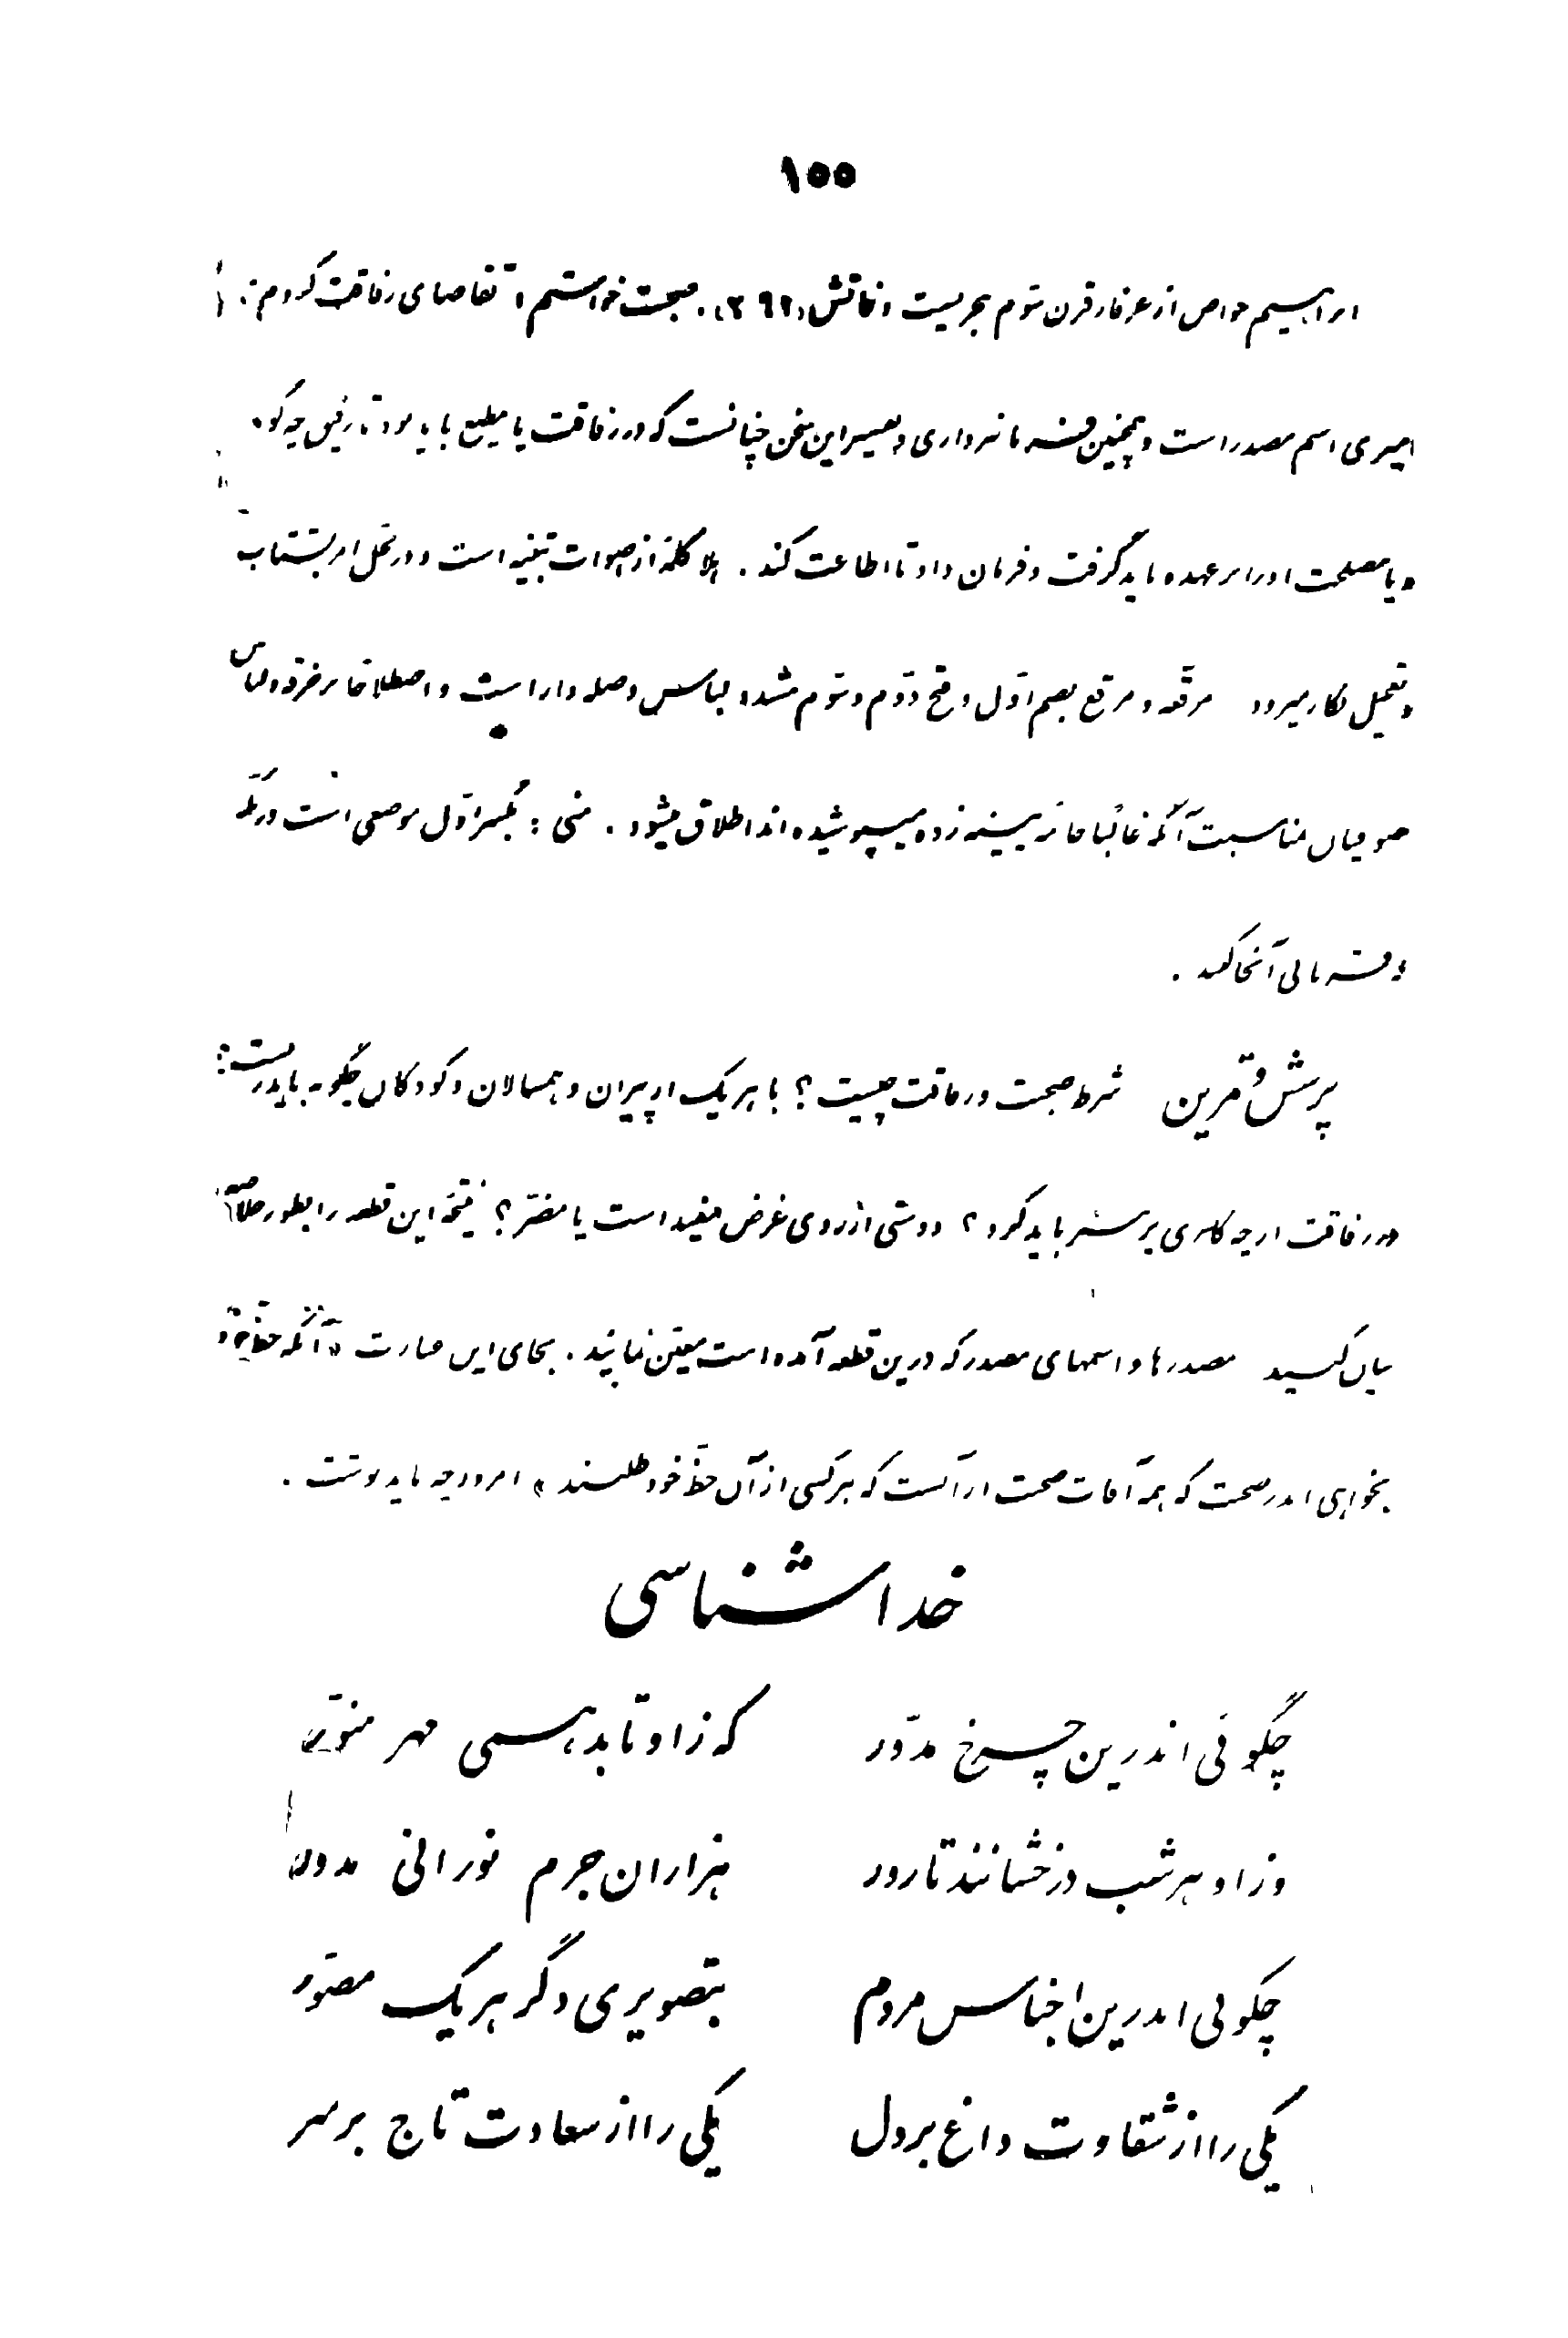 ۱۵۵
ابراهیم خواص از عرفاء قرن سوم هجریست وفاتش (۲۹۱). صحبت خواستم، تقاضای رفاقت کردم؛
امیری اسم مصدر است و همچنین فرمانبرداری و تفسیر این سخن چنانست که در رفاقت یا مطیع باید بود تا رفیق چه گوید
و یا مصلحت او را بر عهده باید گرفت و فرمان داد تا اطاعت کند. هلا کلمهٔ از اصوات تنبیه است و در محل امر بشتاب
و تعجیل بکار میرود مرقعه و مرقع بضم اول و فتح دوم و سوم مشدد لباس وصله دار است و اصطلاحا بر خرقه و لباس
صوفیان بمناسبت آنکه غالبا جامهٔ پینه زده میپوشیده‌اند اطلاق میشود. منی: بکسر اول موضعی است در مکه
و قربانی آنجا کنند.
پرسش و تمرین شرط صحبت و رفاقت چیست؟ با هر یک از پیران و همسالان و کودکان چگونه باید زیست؟
در رفاقت از چه کاری پرهیز باید کرد؟ دوستی از روی غرض مفید است یا مضر؟ نتیجهٔ این قطعه را بطور خلاصه
بیان کنید مصدرها و اسمهای مصدر که درین قطعه آمده است معین نمایید. بجای این عبارت «آنکه حظ خود
نخواهی اندر صحبت که همه آفات صحبت از آنست که هر کسی از آن حظ خود طلبند» امروز چه باید نوشت.
خداشناسی
چگوئی اندرین چرخ مدور که زاو تابد همی مهر منور
وز او هر شب درخشانند تا روز هزاران جرم نورانی مدور
چگوئی اندرین اجناس مردم بتصویری دگر هر یک مصور
یکی را از شقاوت داغ بر دل یکی را از سعادت تاج بر سر